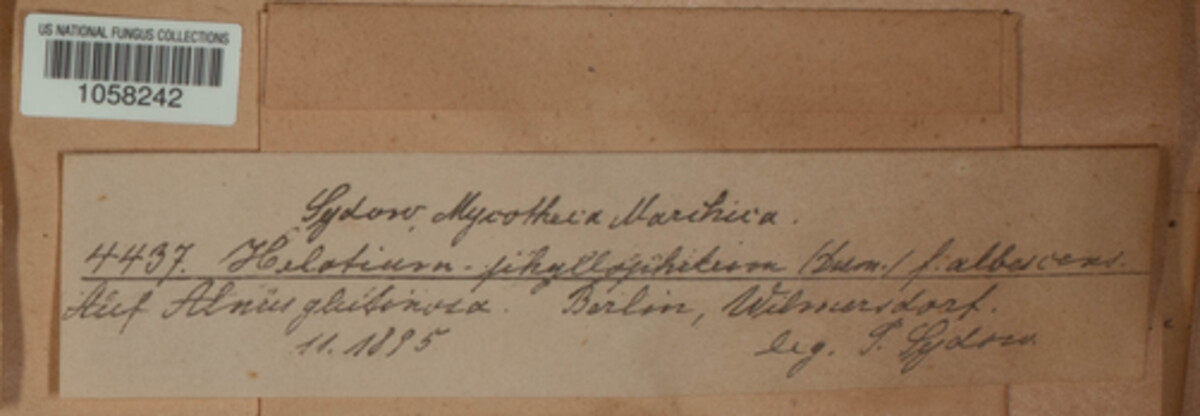 US NATIONAL FUNGUS COLLECTIONS
1058242
Sydow, Mycotheca Marchica.
4437. Helotium phyllophilum (Desm.) f. albescens.
Auf Alnus glutinosa. Berlin, Wilmersdorf.
11. 1895 leg. P. Sydow.